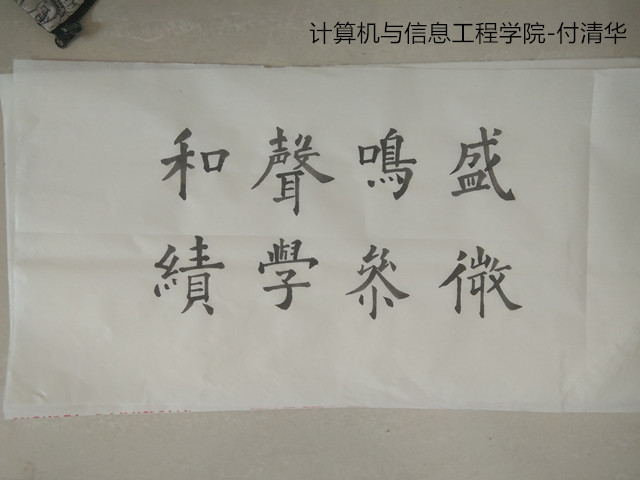 计算机与信息工程学院-付清华
和聲鳴盛
績學叅微